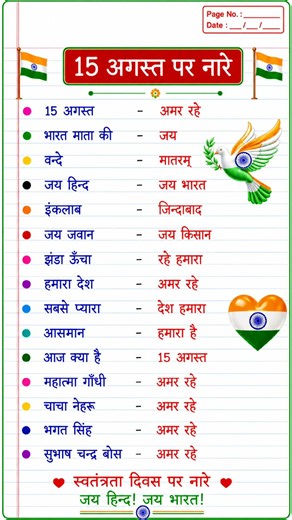 Page No. : ________
Date : __/__/____
15 अगस्त पर नारे
15 अगस्त - अमर रहे
भारत माता की - जय
वन्दे - मातरम्
जय हिन्द - जय भारत
इंकलाब - जिन्दाबाद
जय जवान - जय किसान
झंडा ऊँचा - रहे हमारा
हमारा देश - अमर रहे
सबसे प्यारा - देश हमारा
आसमान - हमारा है
आज क्या है - 15 अगस्त
महात्मा गाँधी - अमर रहे
चाचा नेहरू - अमर रहे
भगत सिंह - अमर रहे
सुभाष चन्द्र बोस - अमर रहे
स्वतंत्रता दिवस पर नारे
जय हिन्द! जय भारत!